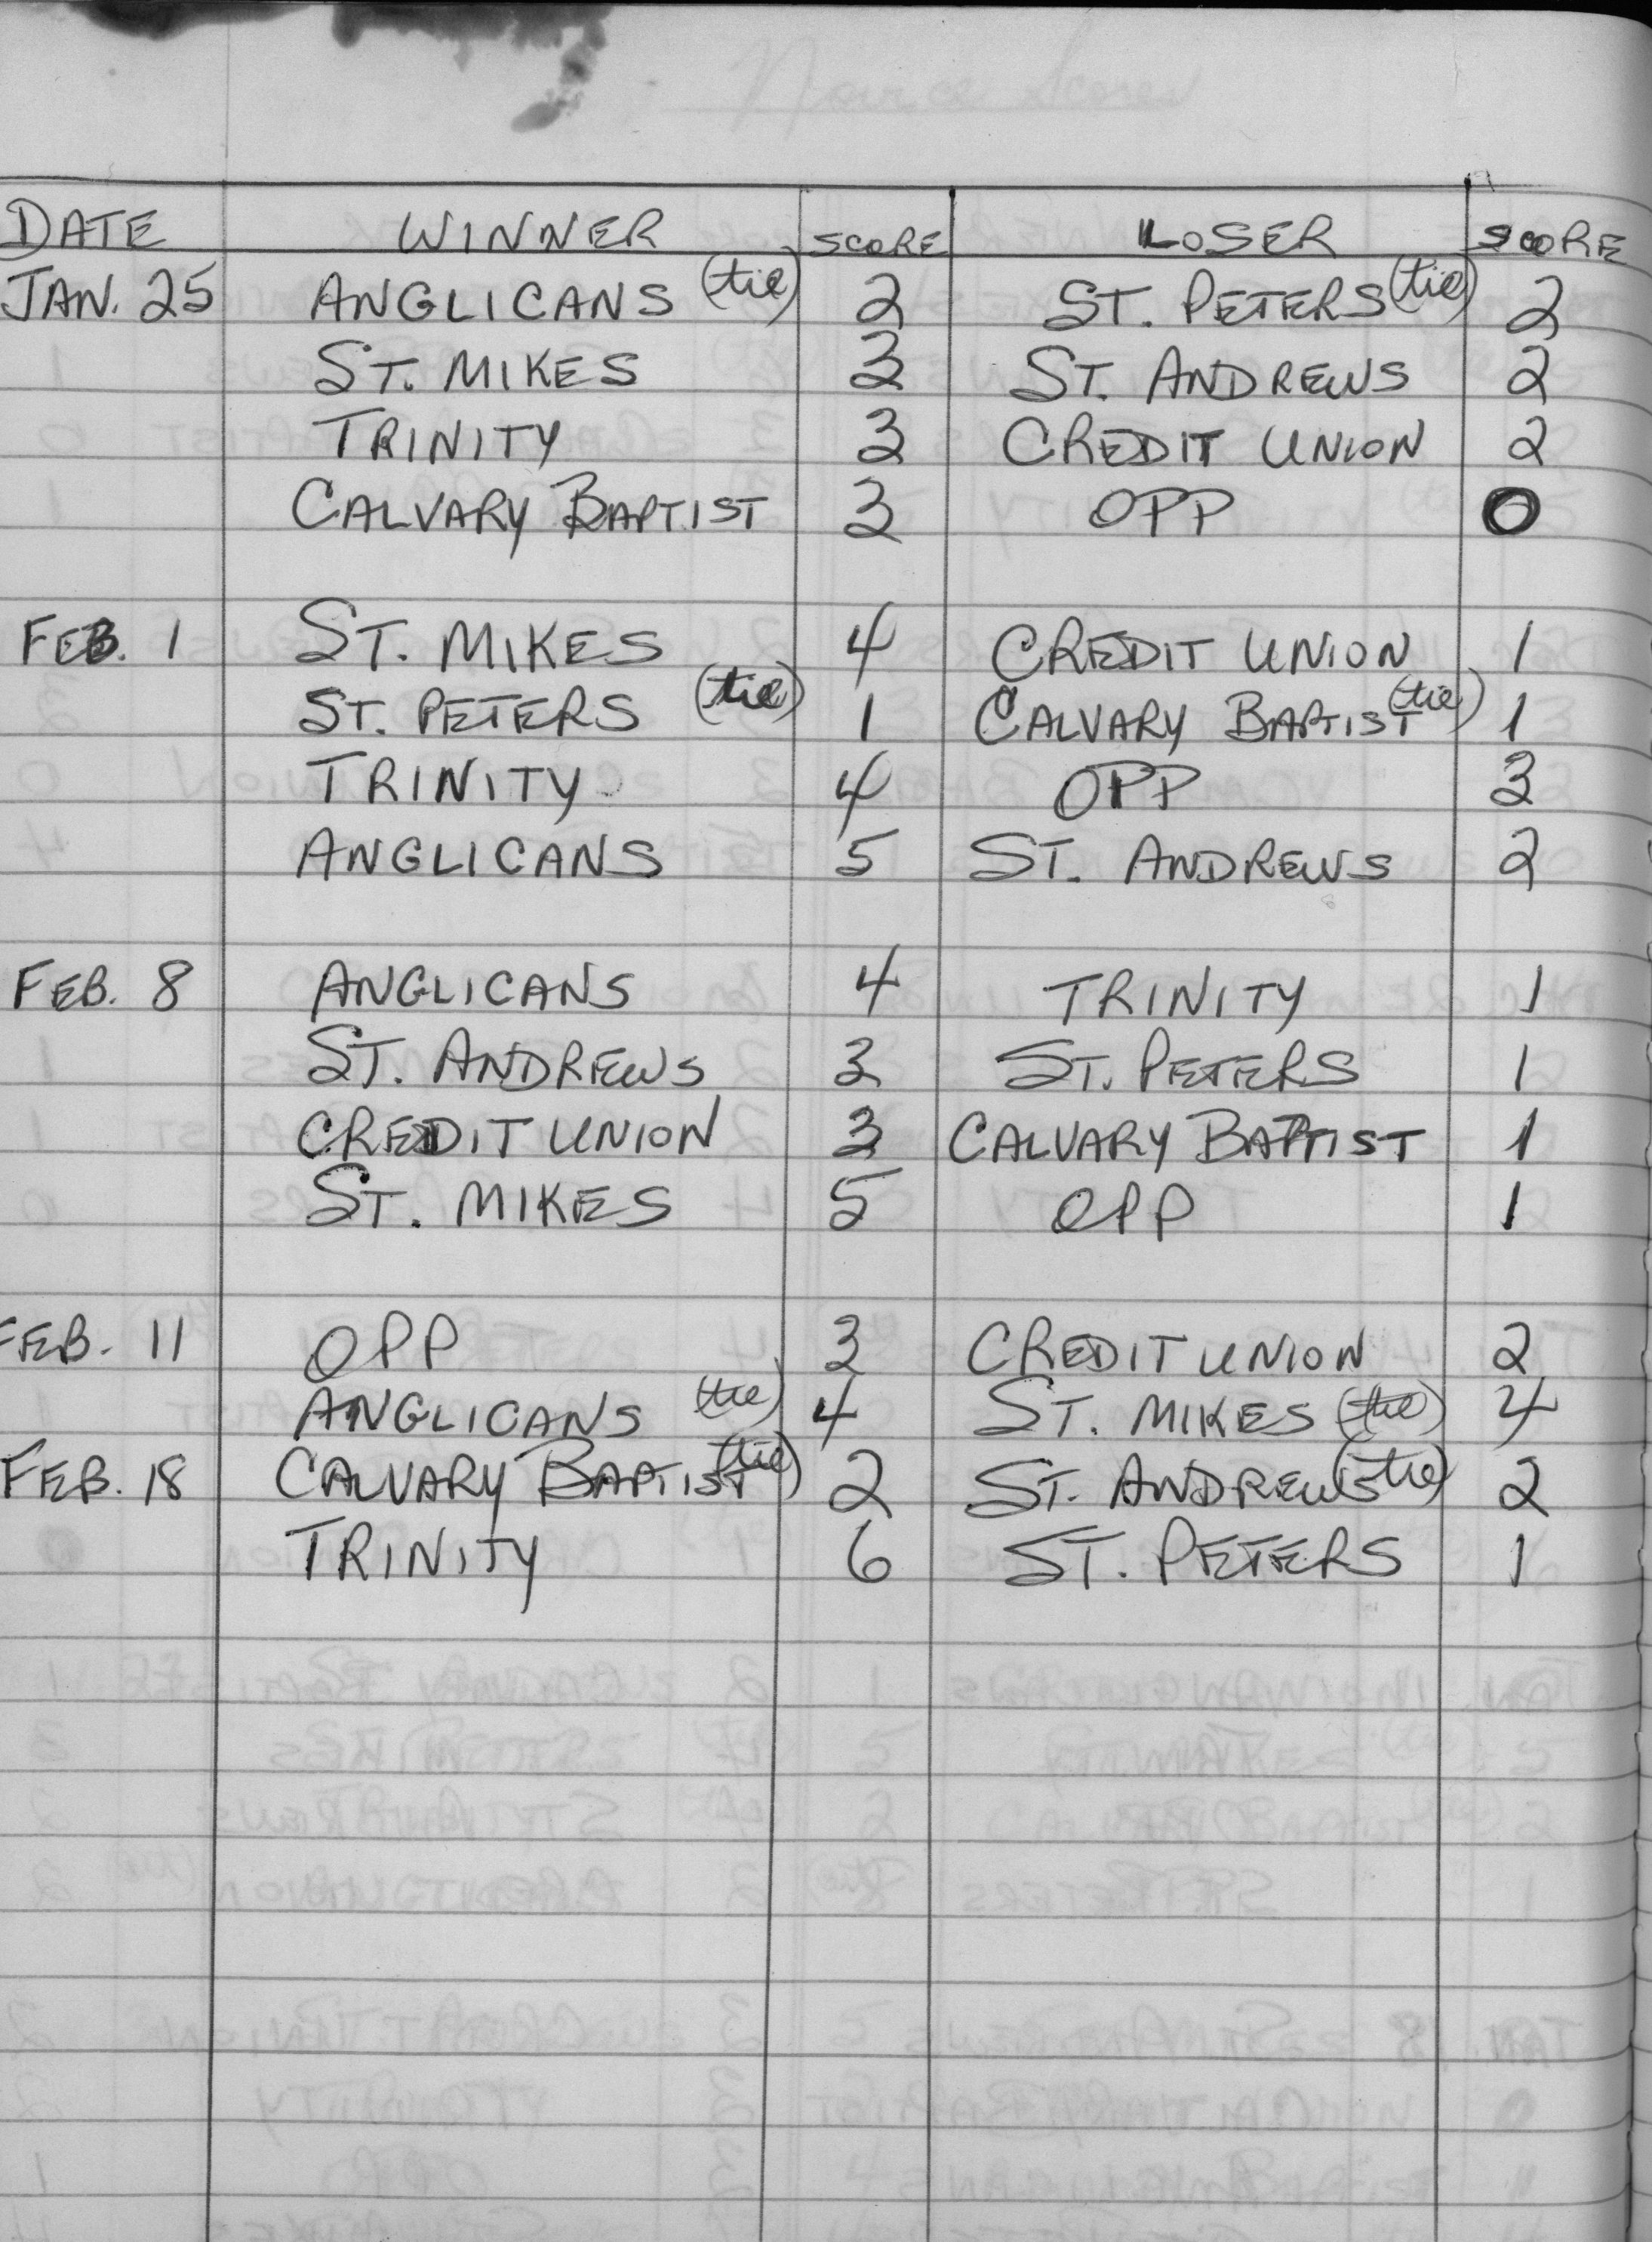 DATE WINNER SCORE LOSER SCORE
JAN. 25 ANGLICANS (tie) 2 ST. PETERS (tie) 2
ST. MIKES 3 ST. ANDREWS 2
TRINITY 3 CREDIT UNION 2
CALVARY BAPTIST 3 OPP 0
FEB. 1 ST. MIKES 4 CREDIT UNION 1
ST. PETERS (tie) 1 CALVARY BAPTIST (tie) 1
TRINITY 4 OPP 3
ANGLICANS 5 ST. ANDREWS 2
FEB. 8 ANGLICANS 4 TRINITY 1
ST. ANDREWS 3 ST. PETERS 1
CREDIT UNION 3 CALVARY BAPTIST 1
ST. MIKES 5 OPP 1
FEB. 11 OPP 3 CREDIT UNION 2
ANGLICANS (tie) 4 ST. MIKES (tie) 4
FEB. 18 CALVARY BAPTIST (tie) 2 ST. ANDREWS (tie) 2
TRINITY 6 ST. PETERS 1